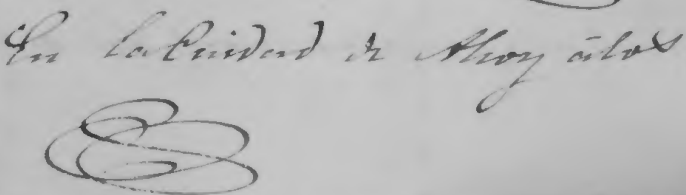 En la Ciudad de Alcoy á los